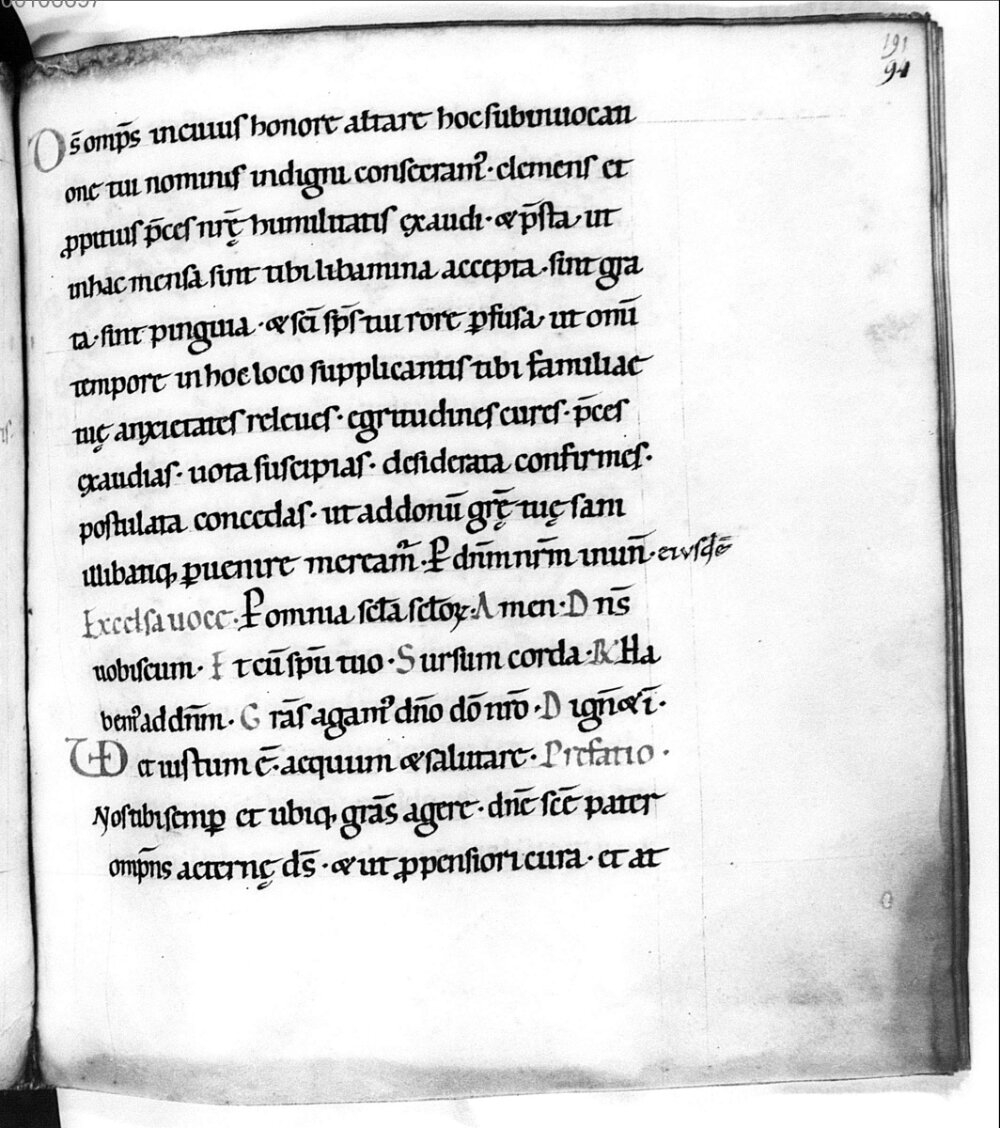 191
94
Ds̄ omp̄s incuius honore altare hoc subinuocati
one tui nominis indigni consecram᷒· clemens et
ꝓpitius p̄ces nrę̄ humilitatis ęxaudi· & p̄sta, ut
inhac mensa sint tibi libamina accepta· sint gra
ta· sint pinguia· & sc̄i sp̄s tui rore ꝑfusa, ut omī
tempore inhoc loco supplicantis tibi familiae
tuę anxietates releues· egritudines cures· p̄ces
ęxaudias· uota suscipias· desiderata confirmes·
postulata concedas· ut addonū grę̄ tuę sam
illibatiq; ꝑuenire meream᷑· P dn̄m nr̄m inun̄· eiusdē
Excelsa uoce· P omnia sc̄la sc̄loꝝ· Amen· Dn̄s
uobiscum· Et cū sp̄u tuo· Sursum corda· R̷ Ha
bem᷒ ad dn̄m· Grās agam᷒ dn̄o dō nr̄o· Dign̄ & ī·
VD et iustum ē· aequum & salutare· Prefatio·
Nos tibi semꝑ et ubiq; grās agere· dn̄e sc̄e pater
omp̄ns aeternę ds̄· & ut ꝓpensiori cura· et at